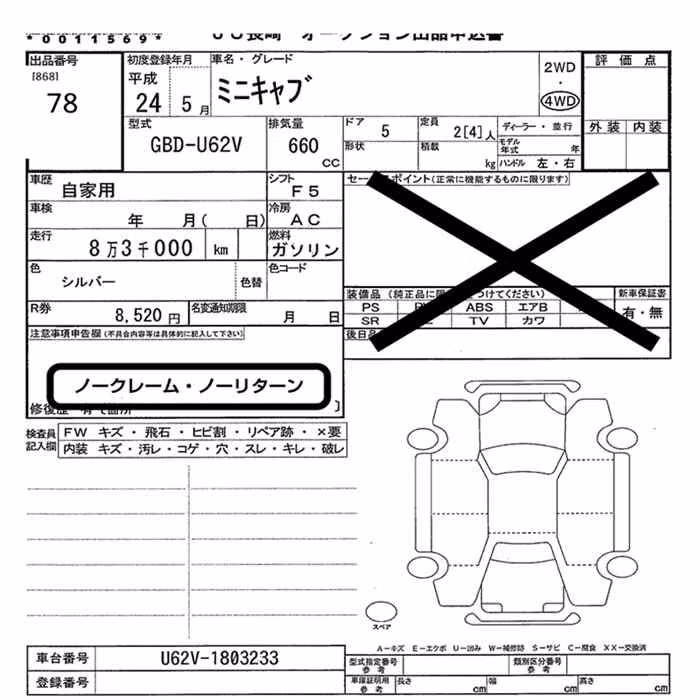 *0011569*
JU長崎 オークション出品申込書
出品番号
[868]
78
初度登録年月
平成
24 5月
車名・グレード
ミニキャブ
2WD
・
4WD
評価点
外装 内装
型式
GBD-U62V
排気量
660
CC
ドア 5
形状
定員 2[4]人
積載 kg
ディーラー・並行
モデル年式 年
ハンドル 左・右
車歴 自家用
シフト F5
車検 年 月( 日)
冷房 AC
走行 8万3千000 km
燃料 ガソリン
色 シルバー
色替
色コード
R券 8,520円
名変通知期限 月 日
注意事項申告欄(不具合内容等は具体的に記入して下さい)
ノークレーム・ノーリターン
修復歴 有
セールスポイント(正常に機能するものに限ります)
装備品
PS ABS エアB
SR TV カワ
新車保証書
有・無
後日品
検査員記入欄
FW キズ・飛石・ヒビ割・リペア跡・×要
内装 キズ・汚レ・コゲ・穴・スレ・キレ・破レ
スペア
A−キズ E−エクボ U−凹み W−補修跡 S−サビ C−腐食 XX−交換済
車台番号 U62V-1803233
登録番号
型式指定番号参考
類別区分番号参考
車庫証明用参考
長さ cm
幅 cm
高さ cm